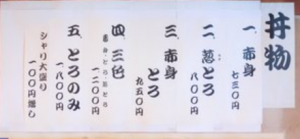 丼物
一、赤身
七三〇円
二、葱とろ
八〇〇円
三、赤身
とろ
九五〇円
四、三色
一二〇〇円
五、とろのみ
一八〇〇円
シャリ大盛り
一〇〇円増し